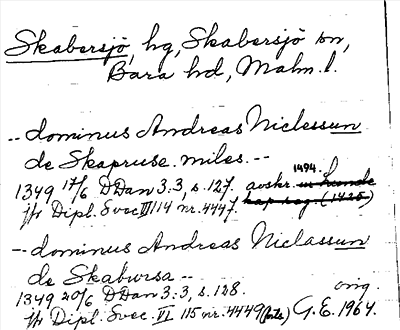 Skabersjö, hg, Skabersjö sn,
Bara hd, Malm. l.
-- dominus Andreas Niclessun
de Skapruse miles. --
1349 17/6 DDan 3:3, s. 127. avskr. 1494.
jfr Dipl. Svec III 114 nr. 4447.
-- dominus Andreas Niclassun
de Skabursa --
1349 20/6 DDan 3:3, s. 128. orig.
jfr Dipl. Svec. VI 115 nr. 4449 G.E. 1964.